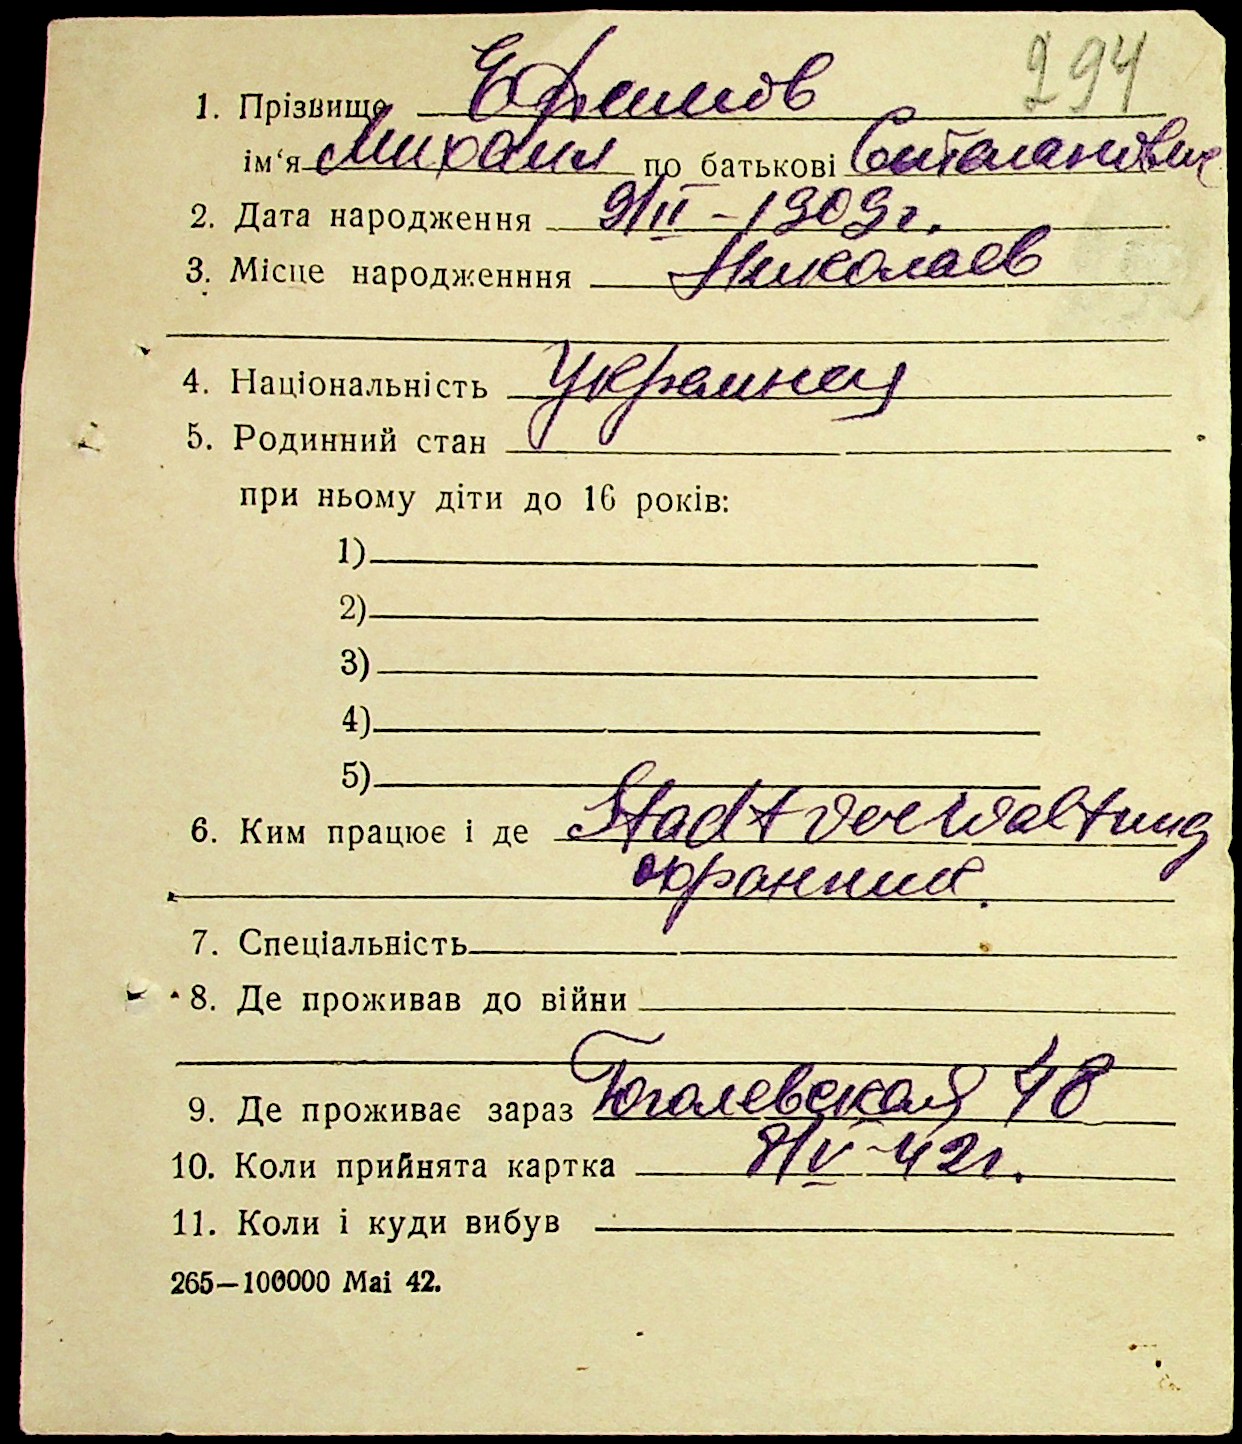 294
1. Прізвище Ефимов
ім‘я Михаил по батькові
2. Дата народження 9/II – 1909 г.
3. Місце народженння Николаев
4. Національність Украинец
5. Родинний стан
при ньому діти до 16 років:
1)
2)
3)
4)
5)
6. Ким працює і де Stadtverwaltung
охранник.
7. Спеціальність
8. Де проживав до війни
9. Де проживає зараз Гоголевская 48
10. Коли прийнята картка 8/V – 42 г.
11. Коли і куди вибув
265—100000 Mai 42.